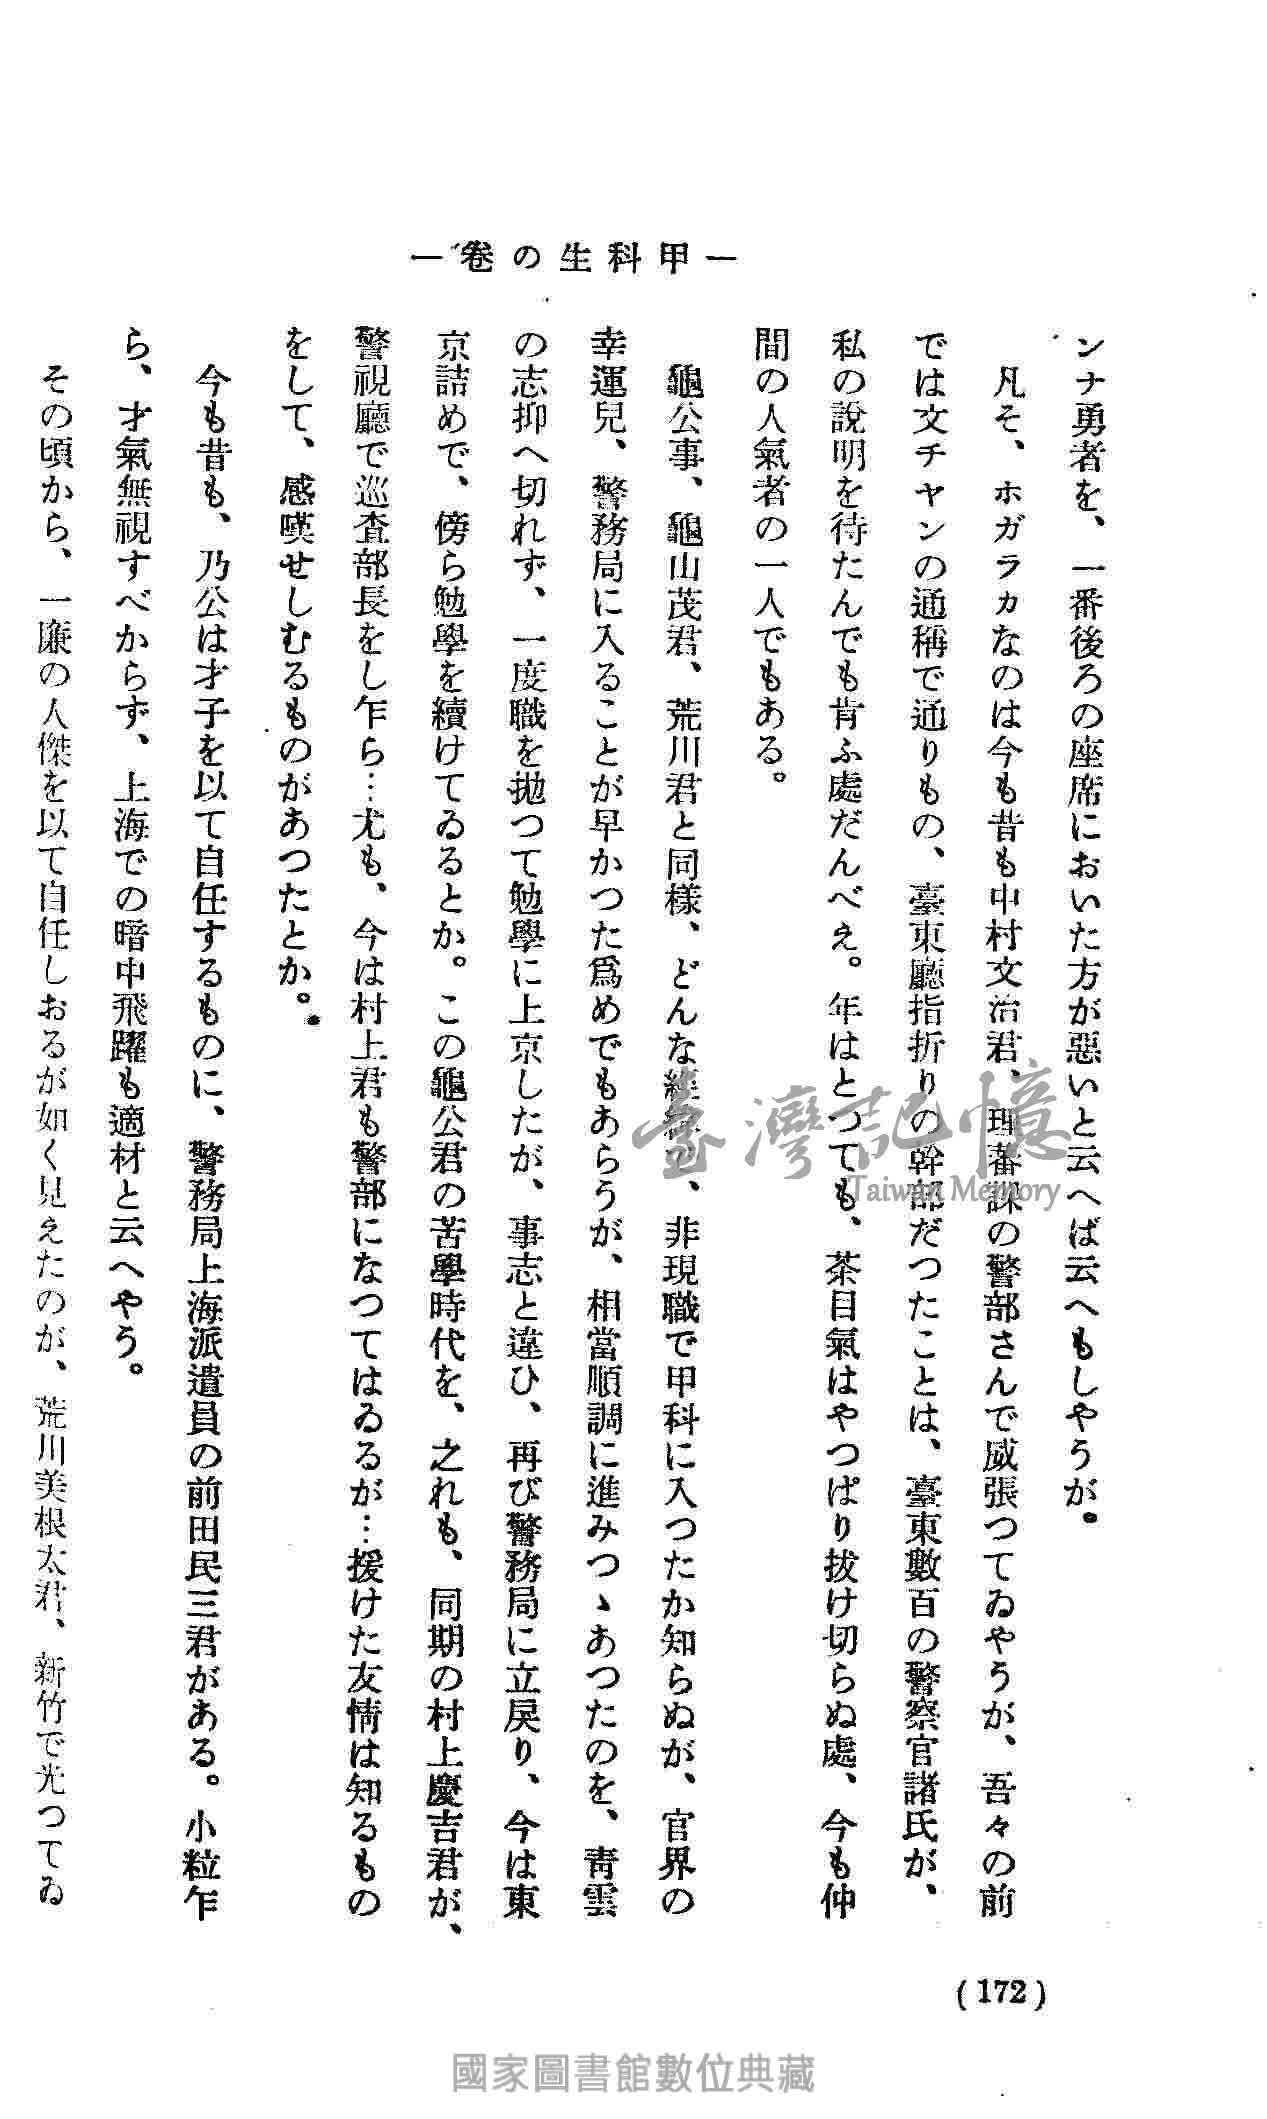 一甲科生の卷一
ンナ勇者を、一番後ろの座席においた方が惡いと云へば云へもしやうが。
凡そ、ホガラカなのは今も昔も中村文治君、理蕃課の警部さんで威張つてゐやうが、吾々の前
では文チヤンの通稱で通りもの、臺東廳指折りの幹部だつたことは、臺東數百の警察官諸氏が、
私の說明を待たんでも肯ふ處だんべえ。年はとつても、茶目氣はやつぱり拔け切らぬ處、今も仲
間の人氣者の一人でもある。
龜公事、龜山茂君、荒川君と同樣、どんな經緯で、非現職で甲科に入つたか知らぬが、官界の
幸運兒、警務局に入ることが早かつた爲めでもあらうが、相當順調に進みつゝあつたのを、靑雲
の志抑へ切れず、一度職を拋つて勉學に上京したが、事志と違ひ、再び警務局に立戾り、今は東
京詰めで、傍ら勉學を續けてゐるとか。この龜公君の苦學時代を、之れも、同期の村上慶吉君が、
警視廳で巡査部長をし乍ら…尤も、今は村上君も警部になつてはゐるが…援けた友情は知るもの
をして、感嘆せしむるものがあつたとか。
今も昔も、乃公は才子を以て自任するものに、警務局上海派遣員の前田民三君がある。小粒乍
ら、才氣無視すべからず、上海での暗中飛躍も適材と云へやう。
その頃から、一廉の人傑を以て自任しおるが如く見えたのが、荒川美根太君、新竹で光つてゐ
(172)
臺灣記憶
Taiwan Memory
國家圖書館數位典藏